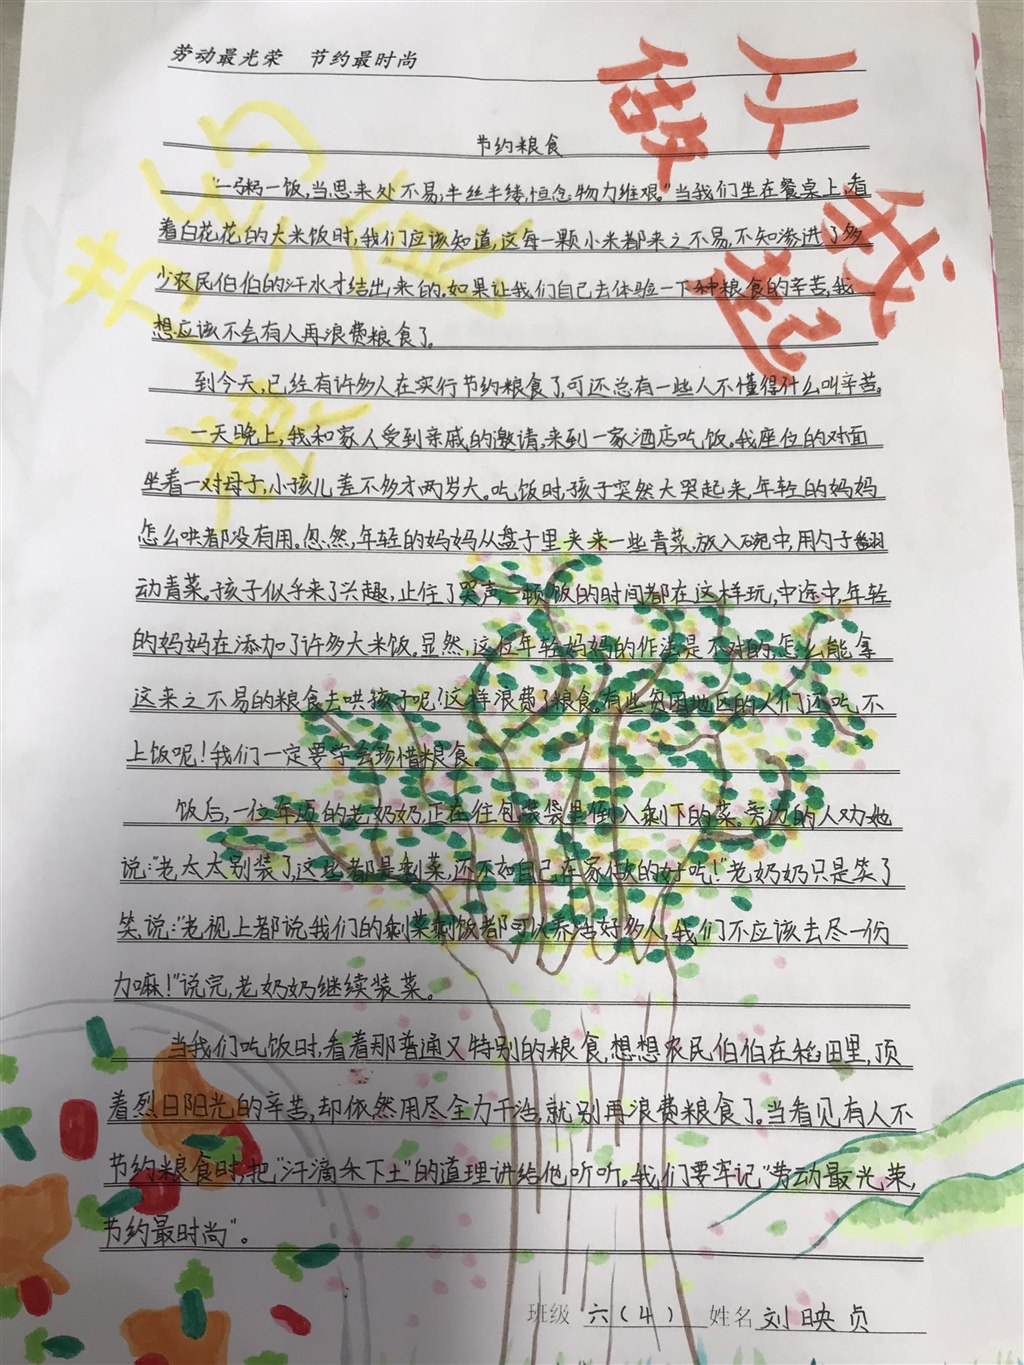 劳动最光荣 节约最时尚
节约粮食
从我做起
节约食
"一粥一饭,当思来处不易,半丝半缕,恒念物力维艰。"当我们坐在餐桌上,看
着白花花的大米饭时,我们应该知道,这每一颗小米都来之不易,不知渗进了多
少农民伯伯的汗水才结出来的。如果让我们自己去体验一下种粮食的辛苦,我
想应该不会有人再浪费粮食了。
到今天,已经有许多人在实行节约粮食了,可还总有一些人不懂得什么叫辛苦。
一天晚上,我和家人受到亲戚的邀请,来到一家酒店吃饭。我座位的对面
坐着一对母子,小孩儿差不多才两岁大。吃饭时,孩子突然大哭起来,年轻的妈妈
怎么哄都没有用。忽然,年轻的妈妈从盘子里夹来一些青菜,放入碗中,用勺子翻
动青菜。孩子似乎来了兴趣,止住了哭声,一顿饭的时间都在这样玩,中途中,年轻
的妈妈在添加了许多大米饭。显然,这位年轻妈妈的作法是不对的,怎么能拿
这来之不易的粮食去哄孩子呢?这样浪费了粮食。有些贫困地区的人们还吃不
上饭呢!我们一定要学会珍惜粮食。
饭后,一位年迈的老奶奶,正在往包装袋里倒入剩下的菜。旁边的人劝她
说:"老太太别装了,这些都是剩菜,还不如自己在家做的好吃!"老奶奶只是笑了
笑说:"老视上都说我们的剩菜剩饭都可以养活好多人,我们不应该去尽一份
力嘛!"说完,老奶奶继续装菜。
当我们吃饭时,看着那普通又特别的粮食,想想农民伯伯在稻田里,顶
着烈日阳光的辛苦,却依然用尽全力干活,就别再浪费粮食了。当看见有人不
节约粮食时,把"汗滴禾下土"的道理讲给他听听。我们要牢记"劳动最光荣,
节约最时尚"。
班级 六(4) 姓名 刘映贞